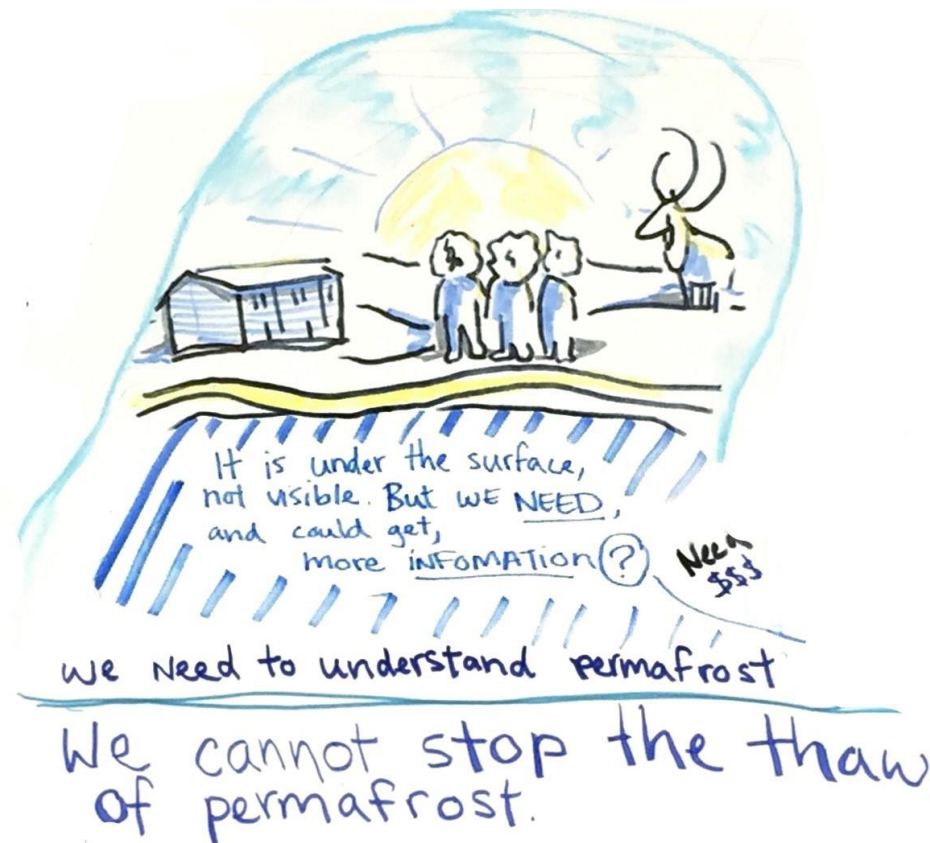 It is under the surface,
not visible. But WE NEED,
and could get,
more iNFOMATION ?
Need
$$$
We Need to understand permafrost
We cannot stop the thaw
of permafrost.